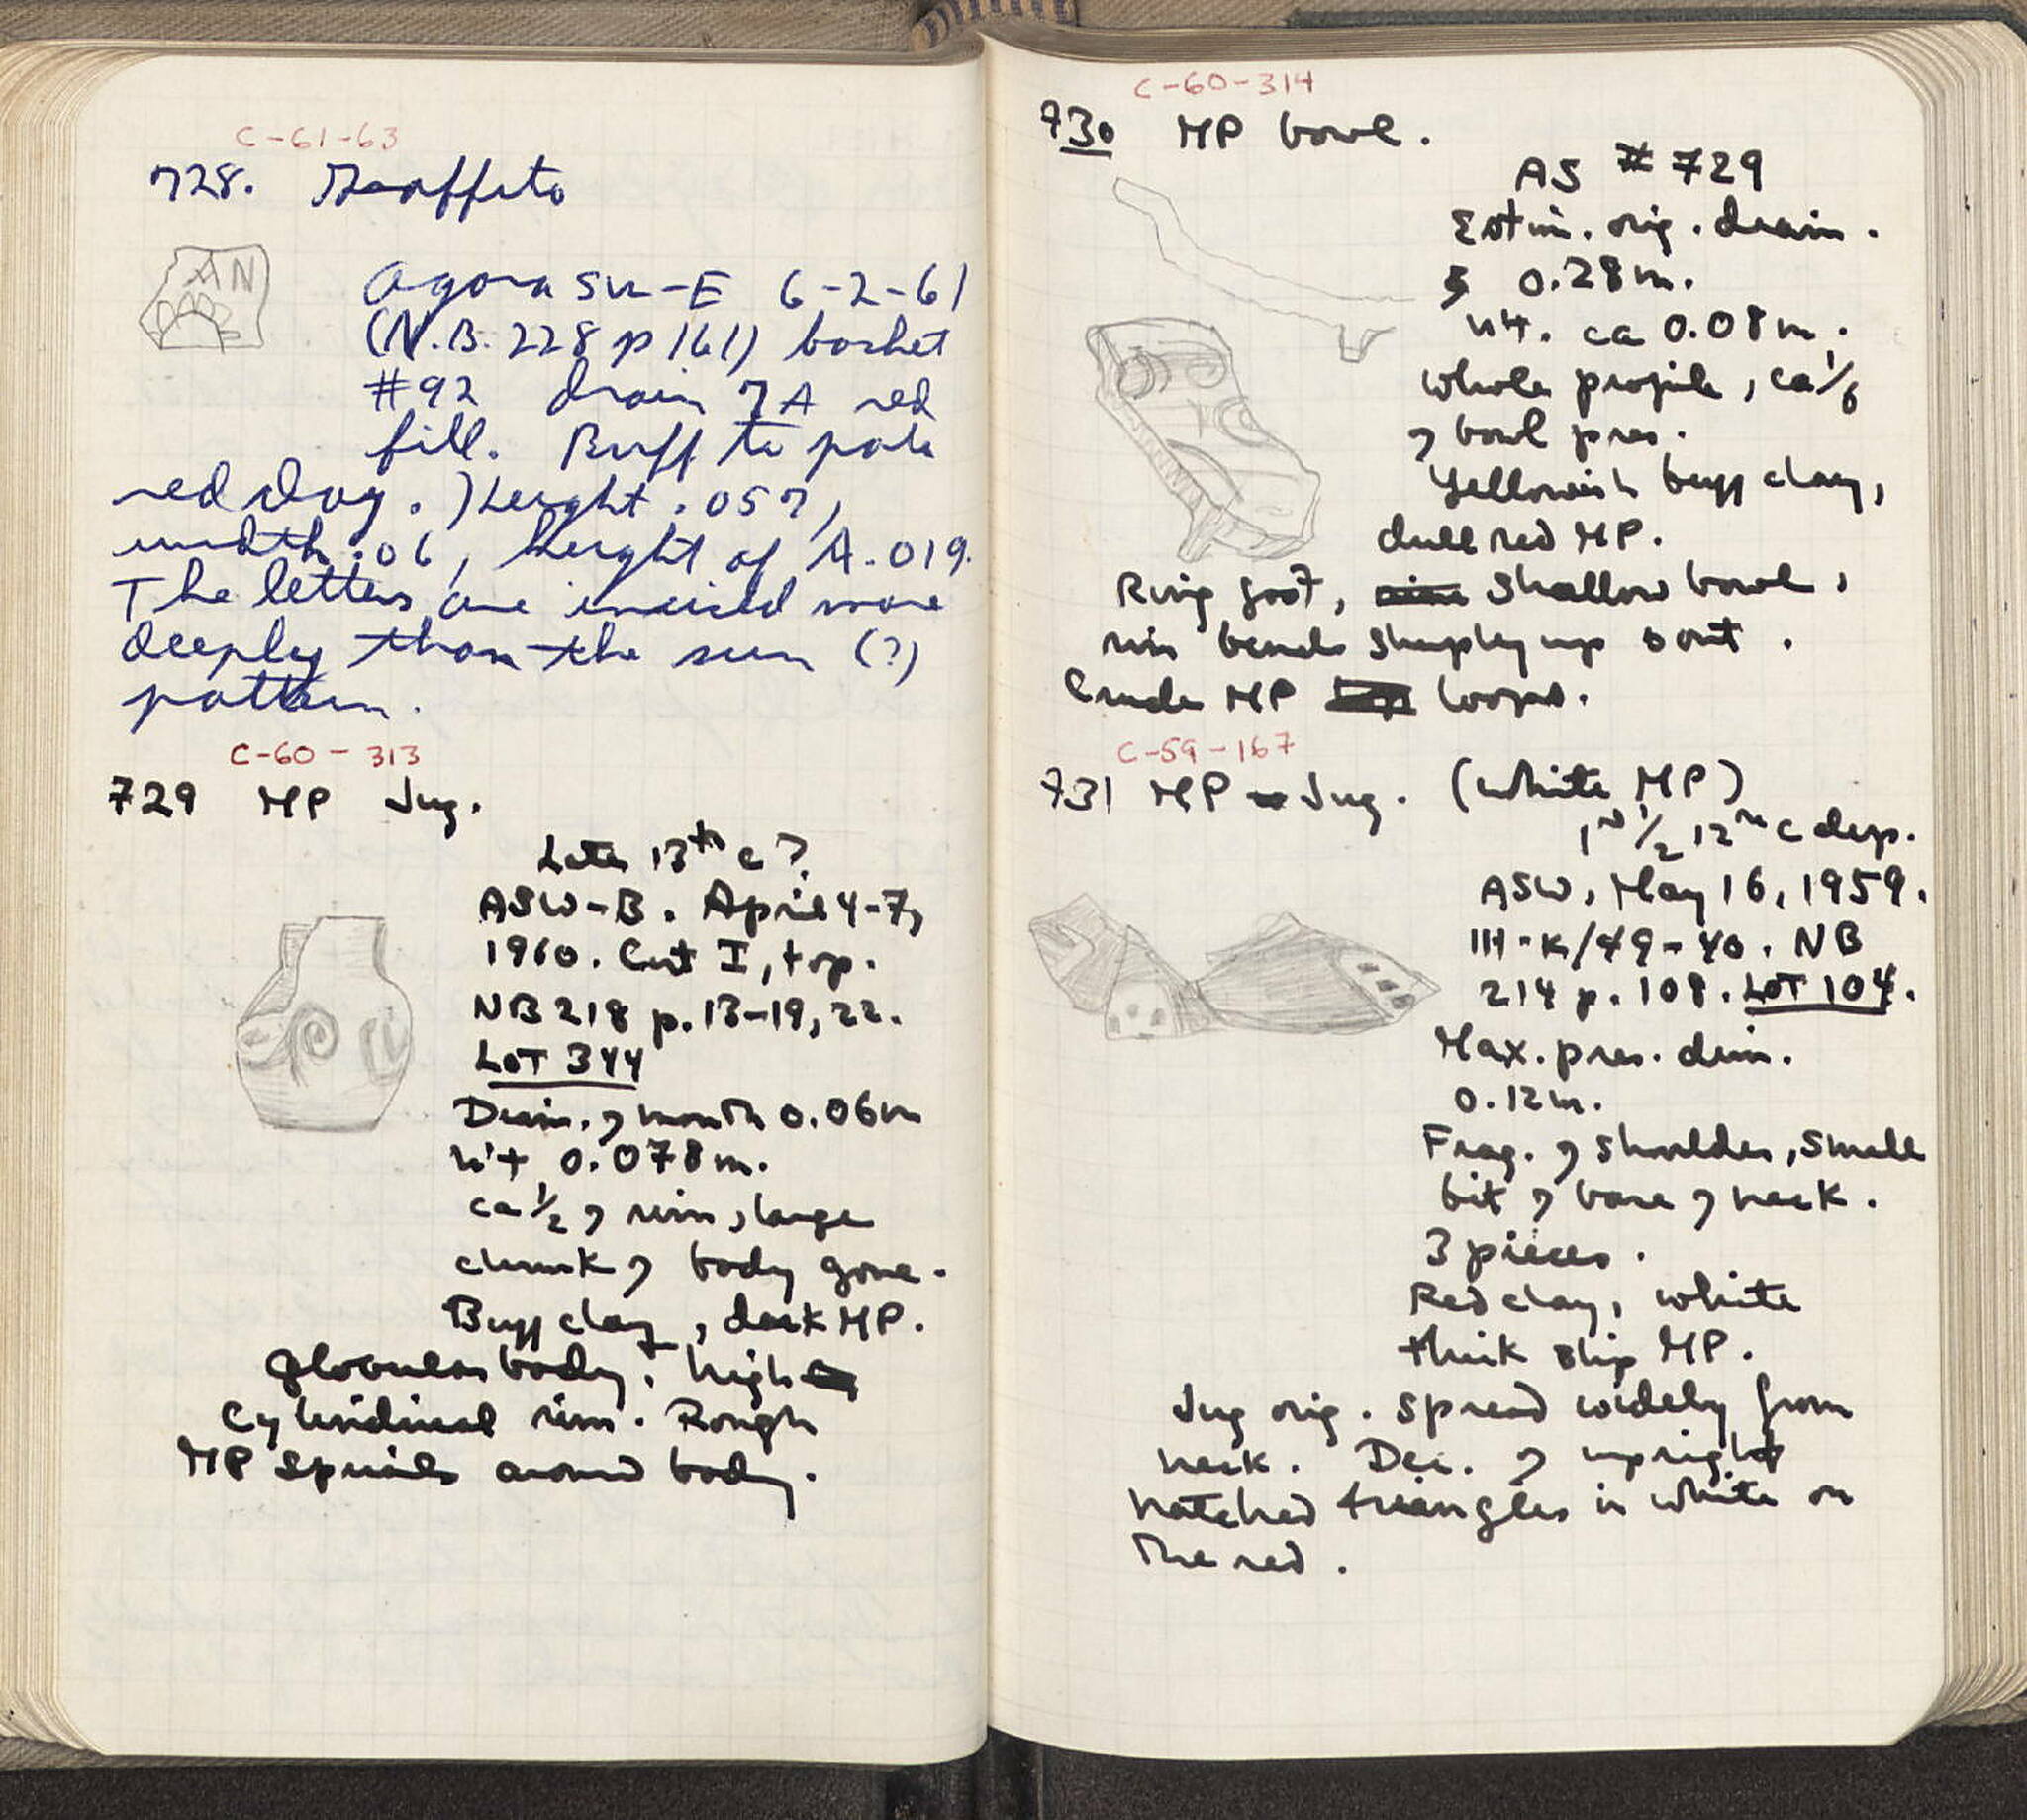 C-61-63
728. Graffito
AN
Agora SW-E 6-2-61
(N.B. 228 p 161) basket
#92 drain 7A red
fill. Buff to pale
red clay. Height .057,
width .06, height of A .019.
The letters are incised more
deeply than the sun (?)
pattern.
C-60-313
729 MP Jug.
Late 13th c?
ASW-B. April 4-7,
1960. Cut I, top.
NB 218 p. 13-19, 22.
LOT 344
Diam. of mouth 0.06m
h't 0.078m.
ca 1/2 of rim, large
chunk of body gone.
Buff clay, dark MP.
Globular body, high
Cylindrical rim. Rough
MP spirals around body.
C-60-314
730 MP bowl.
AS #729
Estim. orig. diam.
0.28m.
h't. ca 0.08m.
whole profile, ca 1/6
of bowl pres.
Yellowish buff clay,
dull red MP.
Ring foot, shallow bowl,
rim bends sharply up & out.
Crude MP loops.
C-59-167
731 MP Jug. (White MP)
1st 1/2 12th c dep.
ASW, May 16, 1959.
III-K/49-40. NB
214 p. 108. LOT 104.
Max. pres. dim.
0.12m.
Frag. of shoulder, small
bit of base of neck.
3 pieces.
Red clay, white
thick slip MP.
Jug orig. spread widely from
neck. Dec. of upright
hatched triangles in white on
the red.